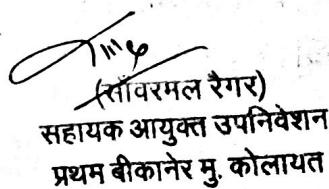 (साँवरमल रैगर)
सहायक आयुक्त उपनिवेशन
प्रथम बीकानेर मु. कोलायत